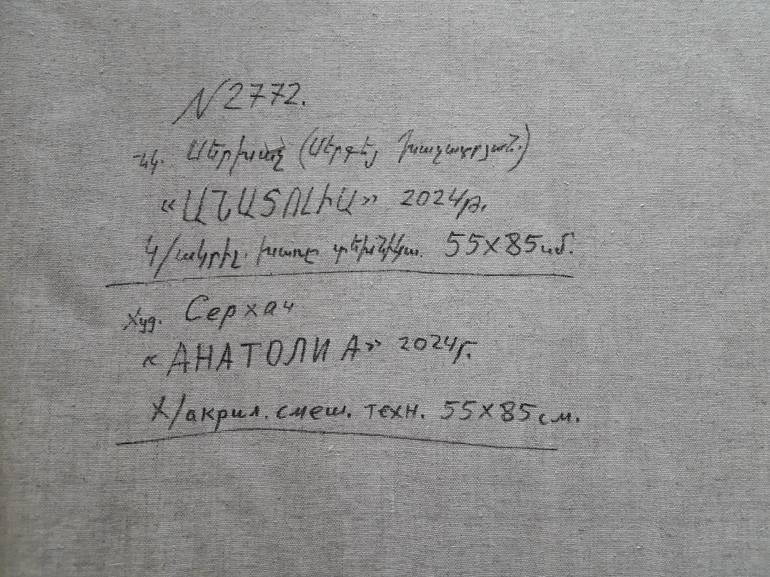 N 2772.
նկ. Սերխաչ (Սերգեյ Խաչատրյան.)
«ԱՆԱՏՈԼԻԱ» 2024թ.
Կ/ակրիլ. խառը տեխնիկա. 55x85սմ.
Худ. Серхач
«АНАТОЛИ А» 2024г.
Х/акрил. смеш. техн. 55x85см.